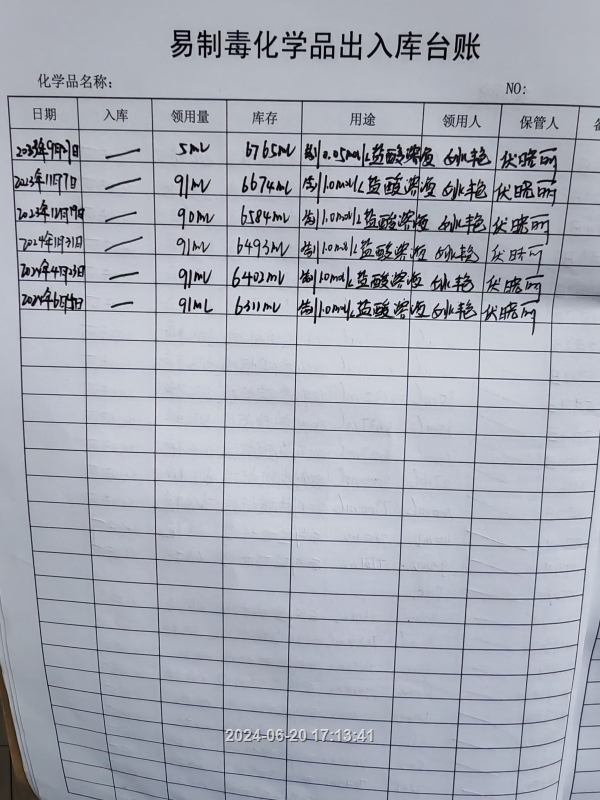 易制毒化学品出入库台账
化学品名称: NO:
日期 入库 领用量 库存 用途 领用人 保管人
2023年9月27日 — 5mL 6765mL 0.05mol/L盐酸溶液 艳 伏晓丽
2023年11月7日 — 91mL 6674mL 1.0mol/L盐酸溶液 艳 伏晓丽
2023年12月19日 — 90mL 6584mL 1.0mol/L盐酸溶液 艳 伏晓丽
2024年1月31日 — 91mL 6493mL 1.0mol/L盐酸溶液 艳 伏晓丽
2024年4月23日 — 91mL 6402mL 1.0mol/L盐酸溶液 艳 伏晓丽
2024年6月4日 — 91mL 6311mL 1.0mol/L盐酸溶液 艳 伏晓丽
2024-06-20 17:13:41